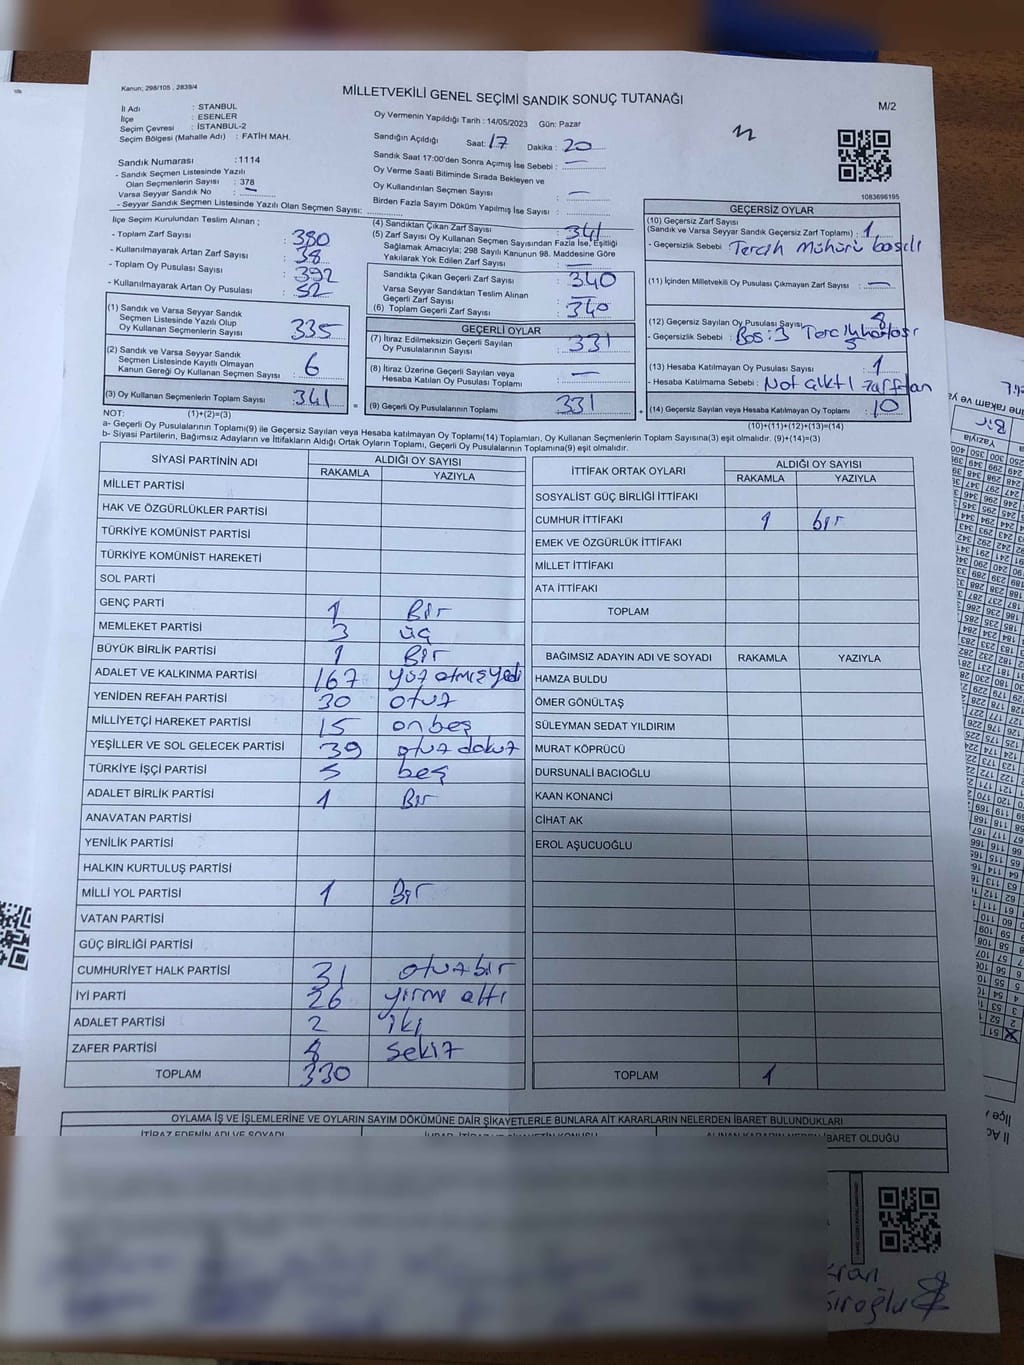 Kanun; 298/105 , 2839/4
MİLLETVEKİLİ GENEL SEÇİMİ SANDIK SONUÇ TUTANAĞI
M/2
İl Adı : STANBUL
İlçe : ESENLER
Seçim Çevresi : İSTANBUL-2
Seçim Bölgesi (Mahalle Adı) : FATİH MAH.
Oy Vermenin Yapıldığı Tarih : 14/05/2023 Gün: Pazar
Sandığın Açıldığı Saat: 17 Dakika : 20
Sandık Saat 17:00'den Sonra Açımış İse Sebebi : —
Oy Verme Saati Bitiminde Sırada Bekleyen ve
Oy Kullandırılan Seçmen Sayısı : —
Birden Fazla Sayım Döküm Yapılmış İse Sayısı :
Sandık Numarası :1114
- Sandık Seçmen Listesinde Yazılı
Olan Seçmenlerin Sayısı : 378
Varsa Seyyar Sandık No : —
- Seyyar Sandık Seçmen Listesinde Yazılı Olan Seçmen Sayısı:
1083696195
İlçe Seçim Kurulundan Teslim Alınan ;
- Toplam Zarf Sayısı : 380
- Kullanılmayarak Artan Zarf Sayısı : 38
- Toplam Oy Pusulası Sayısı : 392
- Kullanılmayarak Artan Oy Pusulası : 52
(1) Sandık ve Varsa Seyyar Sandık
Seçmen Listesinde Yazılı Olup
Oy Kullanan Seçmenlerin Sayısı : 335
(2) Sandık ve Varsa Seyyar Sandık
Seçmen Listesinde Kayıtlı Olmayan
Kanun Gereği Oy Kullanan Seçmen Sayısı : 6
(3) Oy Kullanan Seçmenlerin Toplam Sayısı : 341
(4) Sandıktan Çıkan Zarf Sayısı : 341
(5) Zarf Sayısı Oy Kullanan Seçmen Sayısından Fazla İse, Eşitliği
Sağlamak Amacıyla; 298 Sayılı Kanunun 98. Maddesine Göre
Yakılarak Yok Edilen Zarf Sayısı : —
Sandıkta Çıkan Geçerli Zarf Sayısı : 340
Varsa Seyyar Sandıktan Teslim Alınan
Geçerli Zarf Sayısı : —
(6) Toplam Geçerli Zarf Sayısı : 340
GEÇERLİ OYLAR
(7) İtiraz Edilmeksizin Geçerli Sayılan
Oy Pusulalarının Sayısı : 331
(8) İtiraz Üzerine Geçerli Sayılan veya
Hesaba Katılan Oy Pusulası Toplamı : —
(9) Geçerli Oy Pusulalarının Toplamı : 331
GEÇERSİZ OYLAR
(10) Geçersiz Zarf Sayısı
(Sandık ve Varsa Seyyar Sandık Geçersiz Zarf Toplamı) : 1
- Geçersizlik Sebebi : Tercih Mühürü basılı
(11) İçinden Milletvekili Oy Pusulası Çıkmayan Zarf Sayısı : —
(12) Geçersiz Sayılan Oy Pusulası Sayısı : 8
- Geçersizlik Sebebi : Boş: 3
(13) Hesaba Katılmayan Oy Pusulası Sayısı : 1
- Hesaba Katılmama Sebebi : Not çıktı zarftan
(14) Geçersiz Sayılan veya Hesaba Katılmayan Oy Toplamı : 10
(10)+(11)+(12)+(13)=(14)
NOT: (1)+(2)=(3)
a- Geçerli Oy Pusulalarının Toplamı(9) ile Geçersiz Sayılan veya Hesaba katılmayan Oy Toplamı(14) Toplamları, Oy Kullanan Seçmenlerin Toplam Sayısına(3) eşit olmalıdır. (9)+(14)=(3)
b- Siyasi Partilerin, Bağımsız Adayların ve İttifakların Aldığı Ortak Oyların Toplamı, Geçerli Oy Pusulalarının Toplamına(9) eşit olmalıdır.
SİYASİ PARTİNİN ADI ALDIĞI OY SAYISI
RAKAMLA YAZIYLA
MİLLET PARTİSİ
HAK VE ÖZGÜRLÜKLER PARTİSİ
TÜRKİYE KOMÜNİST PARTİSİ
TÜRKİYE KOMÜNİST HAREKETİ
SOL PARTİ
GENÇ PARTİ 1 Bir
MEMLEKET PARTİSİ 3 üç
BÜYÜK BİRLİK PARTİSİ 1 Bir
ADALET VE KALKINMA PARTİSİ 167 yüz atmış yedi
YENİDEN REFAH PARTİSİ 30 otuz
MİLLİYETÇİ HAREKET PARTİSİ 15 on beş
YEŞİLLER VE SOL GELECEK PARTİSİ 39 otuz dokuz
TÜRKİYE İŞÇİ PARTİSİ 5 beş
ADALET BİRLİK PARTİSİ 1 Bir
ANAVATAN PARTİSİ
YENİLİK PARTİSİ
HALKIN KURTULUŞ PARTİSİ
MİLLİ YOL PARTİSİ 1 Bir
VATAN PARTİSİ
GÜÇ BİRLİĞİ PARTİSİ
CUMHURİYET HALK PARTİSİ 31 otuz bir
İYİ PARTİ 26 yirmi altı
ADALET PARTİSİ 2 iki
ZAFER PARTİSİ 8 sekiz
TOPLAM 330
İTTİFAK ORTAK OYLARI ALDIĞI OY SAYISI
RAKAMLA YAZIYLA
SOSYALİST GÜÇ BİRLİĞİ İTTİFAKI
CUMHUR İTTİFAKI 1 bir
EMEK VE ÖZGÜRLÜK İTTİFAKI
MİLLET İTTİFAKI
ATA İTTİFAKI
TOPLAM
BAĞIMSIZ ADAYIN ADI VE SOYADI RAKAMLA YAZIYLA
HAMZA BULDU
ÖMER GÖNÜLTAŞ
SÜLEYMAN SEDAT YILDIRIM
MURAT KÖPRÜCÜ
DURSUNALİ BACIOĞLU
KAAN KONANCİ
CİHAT AK
EROL AŞUCUOĞLU
TOPLAM 1
OYLAMA İŞ VE İŞLEMLERİNE VE OYLARIN SAYIM DÖKÜMÜNE DAİR ŞİKAYETLERLE BUNLARA AİT KARARLARIN NELERDEN İBARET BULUNDUKLARI
İTİRAZ EDENİN ADI VE SOYADI
BARET OLDUĞU